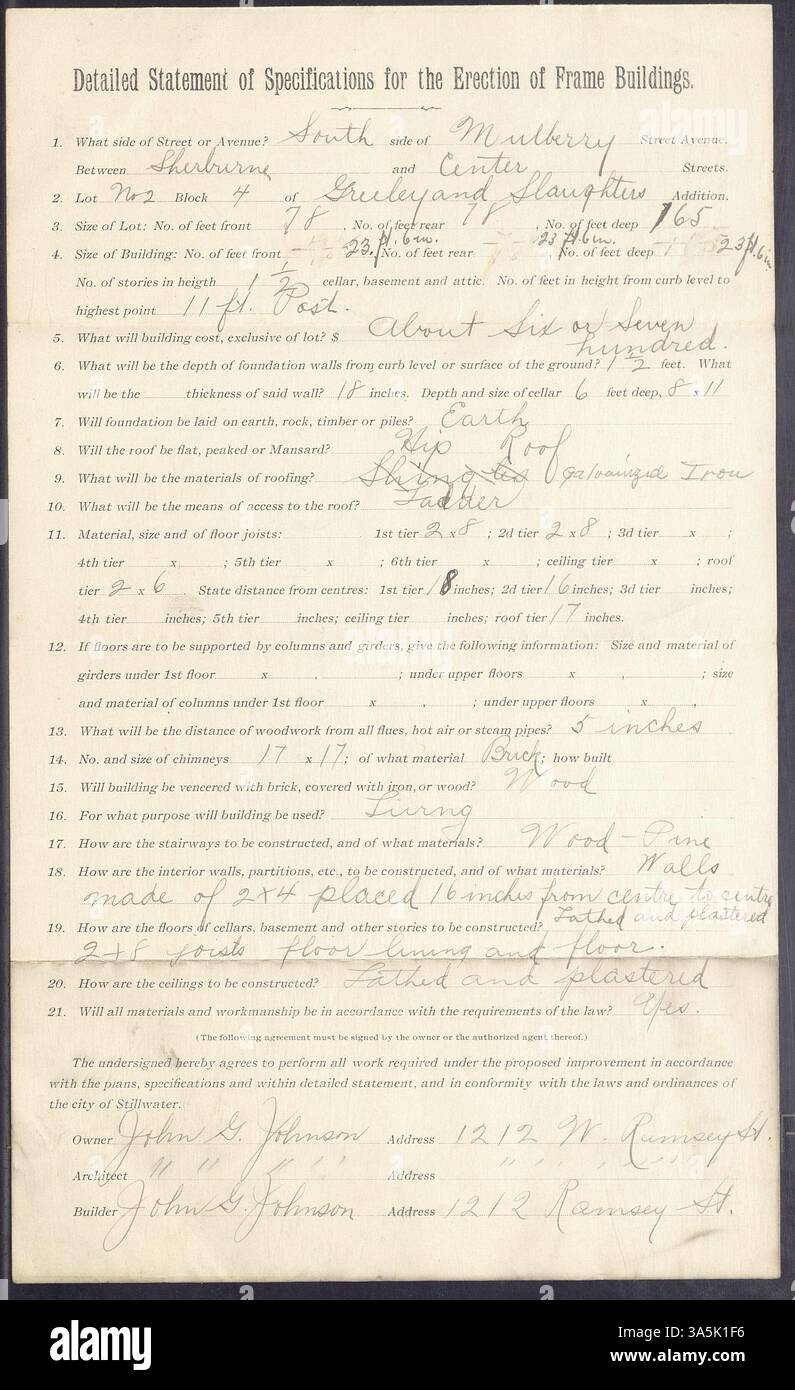 Detailed Statement of Specifications for the Erection of Frame Buildings.
1. What side of Street or Avenue? South side of Mulberry Street Avenue.
Between Sherburne and Center Streets.
2. Lot No 2 Block 4 of Greeley and Slaughters Addition.
3. Size of Lot: No. of feet front 78, No. of feet rear 78, No. of feet deep 165
4. Size of Building: No. of feet front 23 ft. 6 in. No. of feet rear 23 ft. 6 in. No. of feet deep 23 ft. 6 in
No. of stories in heigth 1 1/2 cellar, basement and attic. No. of feet in height from curb level to
highest point 11 ft. Post.
5. What will building cost, exclusive of lot? $ About Six or Seven
hundred.
6. What will be the depth of foundation walls from curb level or surface of the ground? 1 1/2 feet. What
will be the thickness of said wall? 18 inches. Depth and size of cellar 6 feet deep, 8 x 11
7. Will foundation be laid on earth, rock, timber or piles? Earth
8. Will the roof be flat, peaked or Mansard? Hip Roof
9. What will be the materials of roofing? Shingles Galvanized Iron
10. What will be the means of access to the roof? Ladder
11. Material, size and of floor joists: 1st tier 2 x 8 ; 2d tier 2 x 8 ; 3d tier x ;
4th tier x ; 5th tier x ; 6th tier x ; ceiling tier x ; roof
tier 2 x 6 State distance from centres: 1st tier 18 inches; 2d tier 16 inches; 3d tier inches;
4th tier inches; 5th tier inches; ceiling tier inches; roof tier 17 inches.
12. If floors are to be supported by columns and girders, give the following information: Size and material of
girders under 1st floor x , ; under upper floors x , ; size
and material of columns under 1st floor x , ; under upper floors x ,
13. What will be the distance of woodwork from all flues, hot air or steam pipes? 5 inches
14. No. and size of chimneys 17 x 17; of what material Brick; how built
15. Will building be veneered with brick, covered with iron, or wood? Wood
16. For what purpose will building be used? Living
17. How are the stairways to be constructed, and of what materials? Wood - Pine
18. How are the interior walls, partitions, etc., to be constructed, and of what materials? Walls
made of 2x4 placed 16 inches from centre to centre
Lathed and plastered
19. How are the floors of cellars, basement and other stories to be constructed?
2x8 joists floor lining and floor.
20. How are the ceilings to be constructed? Lathed and plastered
21. Will all materials and workmanship be in accordance with the requirements of the law? Yes.
(The following agreement must be signed by the owner or the authorized agent thereof.)
The undersigned hereby agrees to perform all work required under the proposed improvement in accordance
with the plans, specifications and within detailed statement, and in conformity with the laws and ordinances of
the city of Stillwater.
Owner John G. Johnson Address 1212 W. Ramsey St.
Architect " " " " Address " " " " "
Builder John G. Johnson Address 1212 Ramsey St.
alamy
Image ID: 3A5K1F6
www.alamy.com